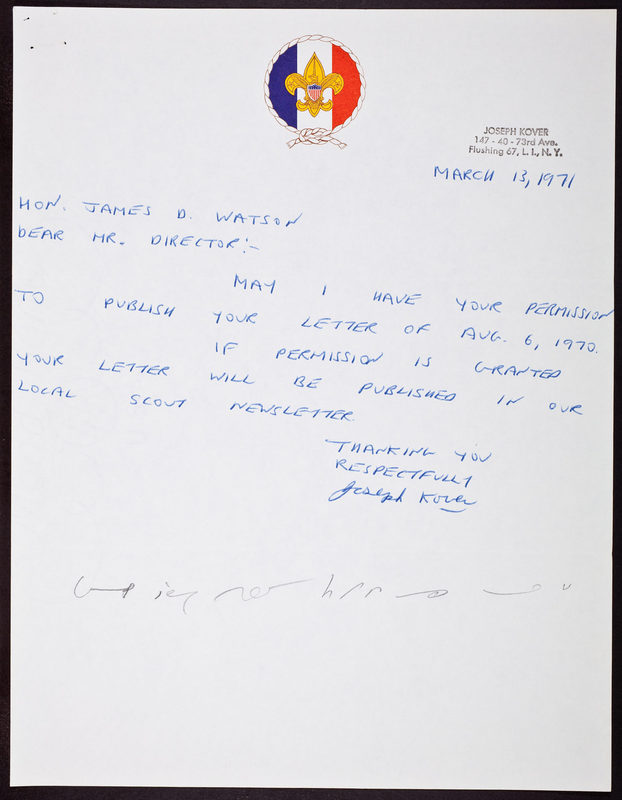 JOSEPH KOVER
147 - 40 - 73rd Ave.
Flushing 67, L. I., N. Y.
MARCH 13, 1971
HON. JAMES D. WATSON
DEAR MR. DIRECTOR:-
MAY I HAVE YOUR PERMISSION
TO PUBLISH YOUR LETTER OF AUG. 6, 1970.
IF PERMISSION IS GRANTED
YOUR LETTER WILL BE PUBLISHED IN OUR
LOCAL SCOUT NEWSLETTER.
THANKING YOU
RESPECTFULLY
Joseph Kover